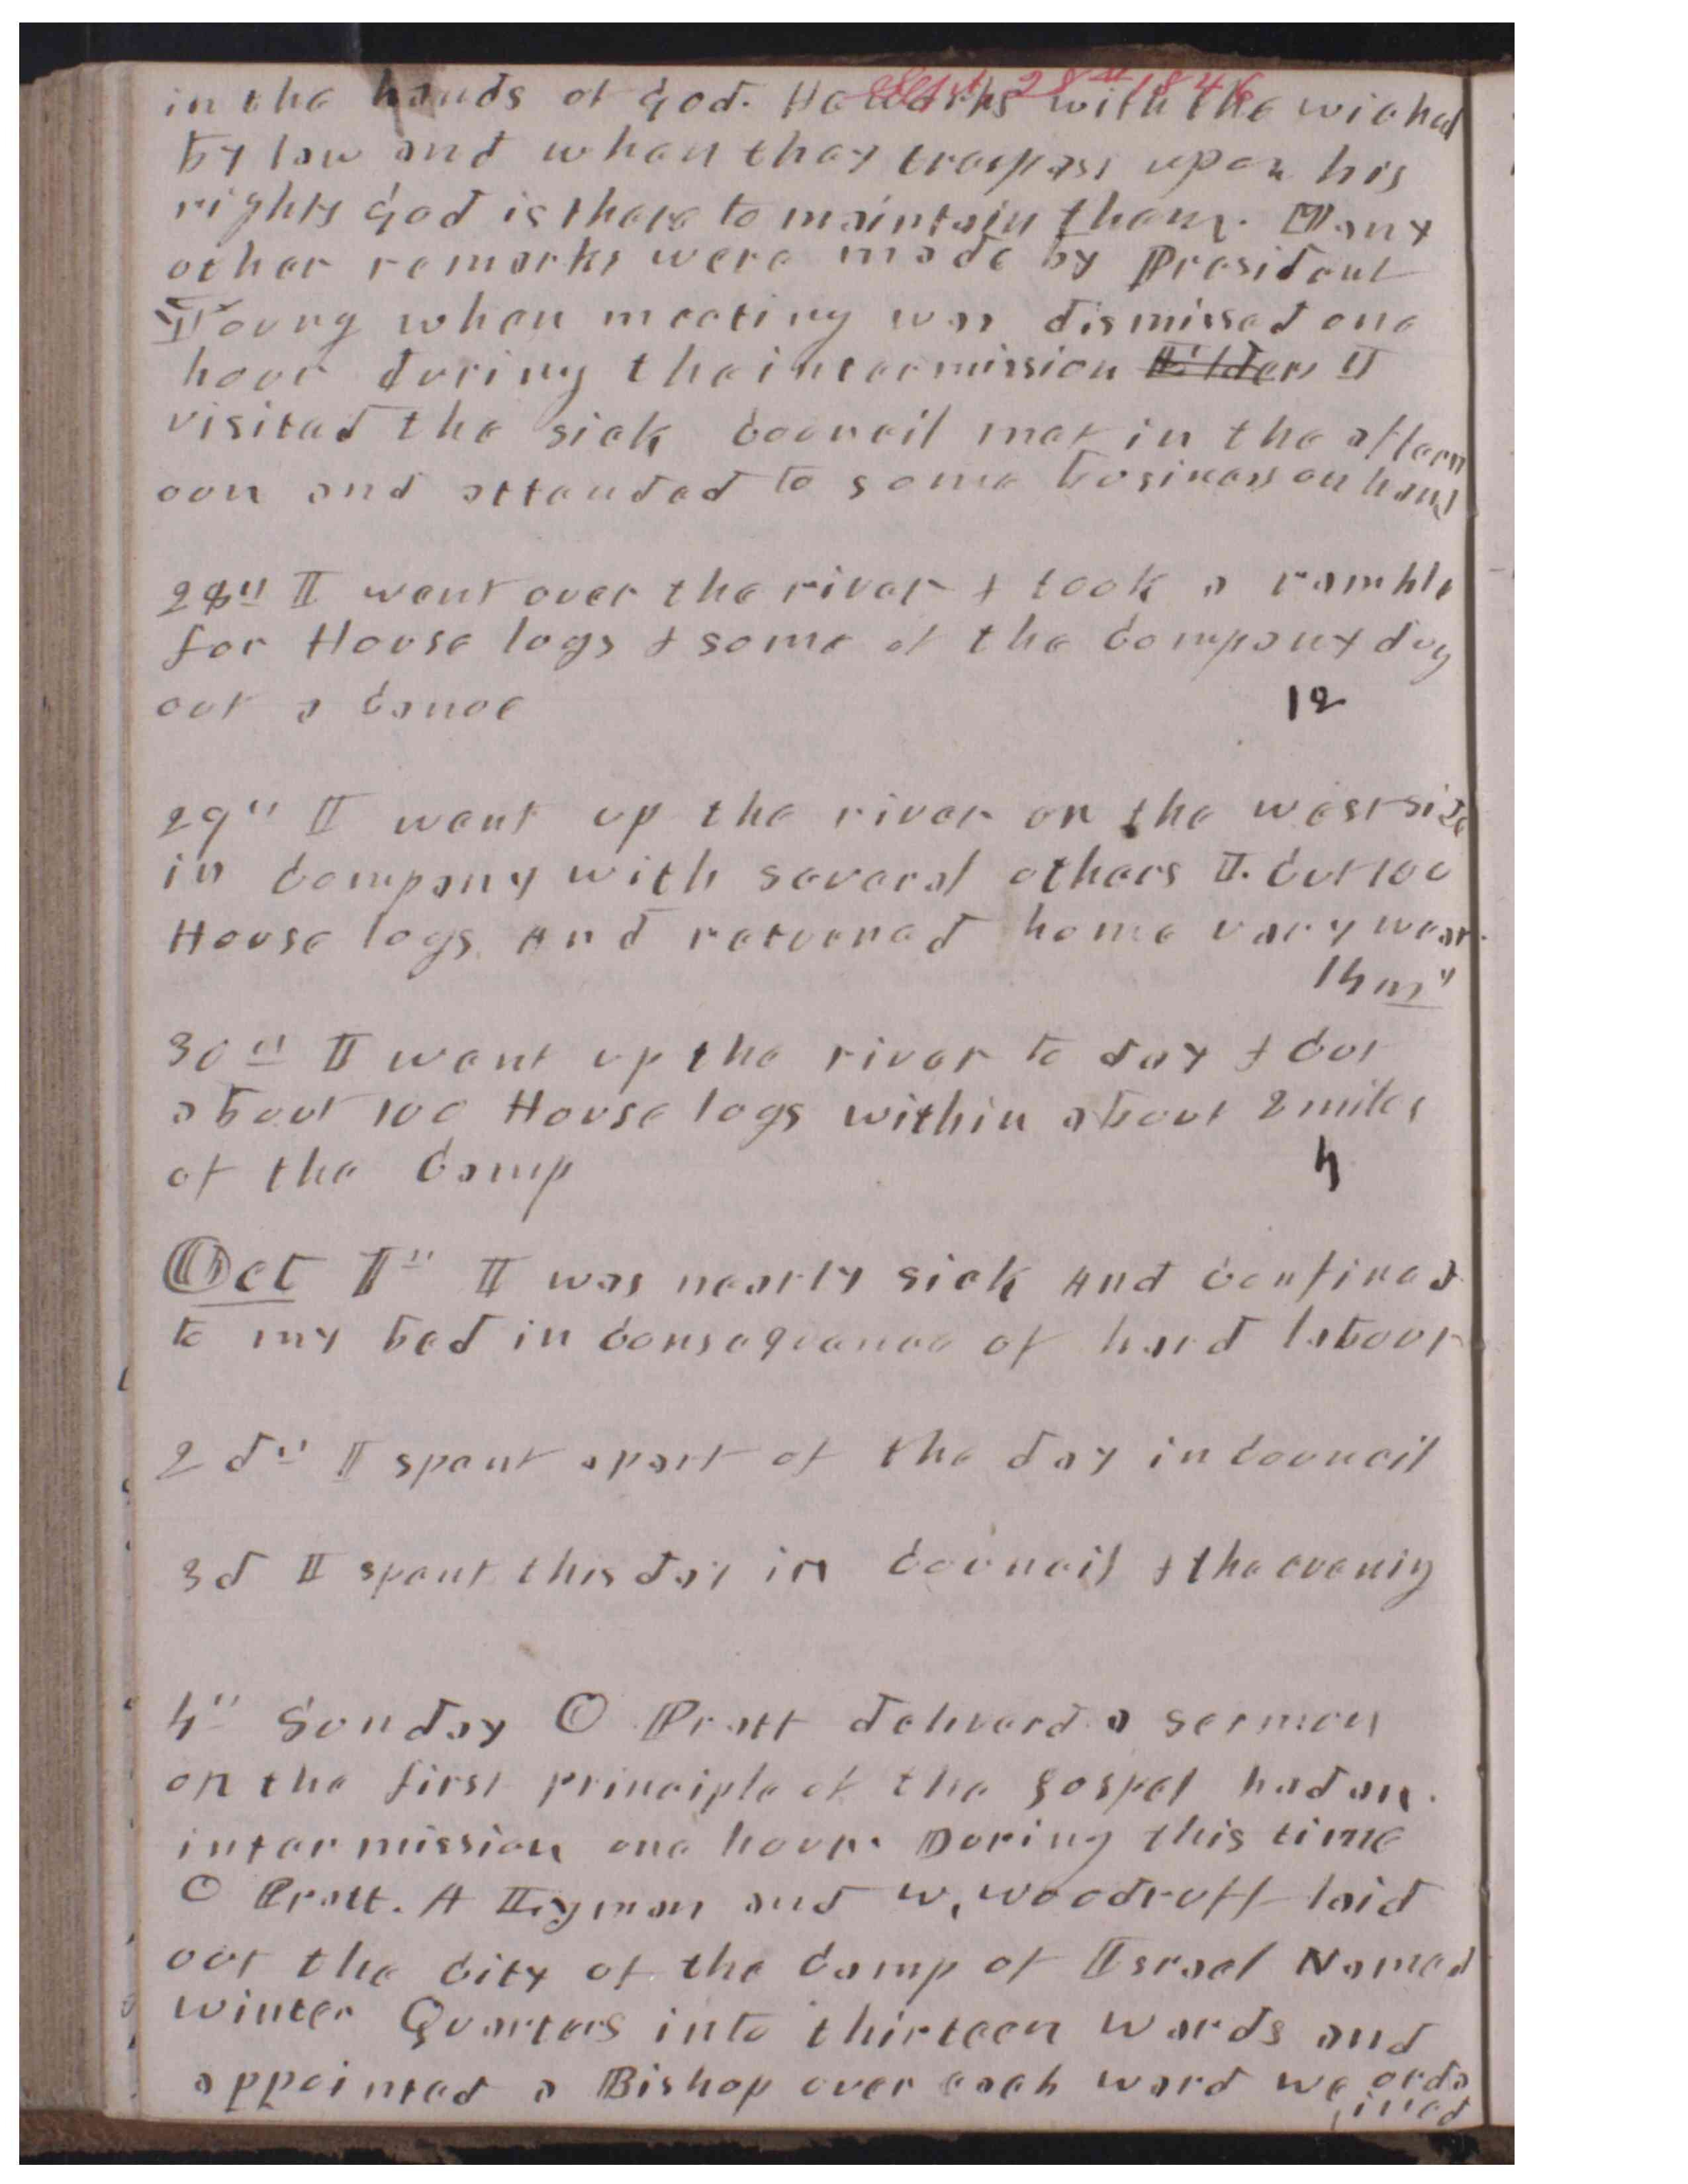 Sept 28th 1846
in the hands of God. He works with the wicked
by law and when they trespass upon his
rights God is there to maintain them. Many
other remarks were made by President
Young when meeting was dismissed one
hour during the intermission Elder I
visited the sick Council met in the aftern
oon and attended to some business on hand
28th I went over the river & took a ramble
for House logs & some of the Company dug
out a Canoe 12
29th I went up the river on the west side
in Company with several others I. Cut 100
House logs And returned home very wear
14 m"
30th I went up the river to day & Cut
about 100 House logs within about 2 miles
of the Camp 4
Oct 1st I was nearly sick And Confined
to my bed in Consequence of hard labour
2d" I spent a part of the day in Council
3d I spent this day in Council & the evenig
4" Sunday O Pratt deliverd a sermon
on the first principle of the gospel had an
intermission one hour. During this time
O Pratt. A Lyman and W, Woodruff laid
out the City of the Camp of Israel Named
winter Quarters into thirteen wards and
appointed a Bishop over each ward we orda
ined